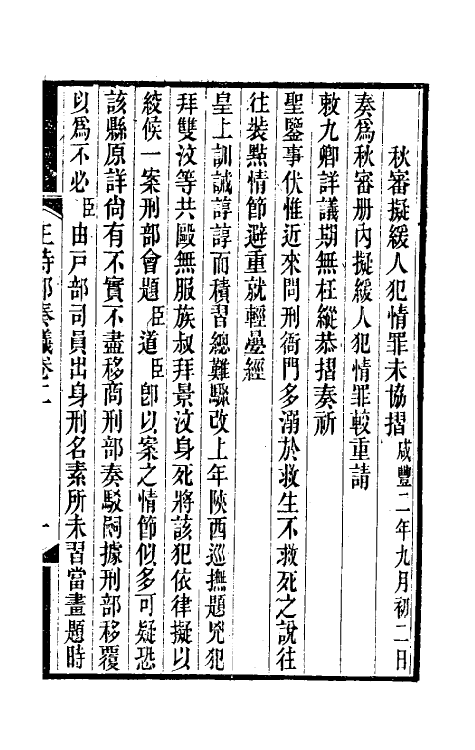 秋審擬緩人犯情罪未協摺咸豐二年九月初二日
奏爲秋審册內擬緩人犯情罪較重請
敕九卿詳議期無枉縱恭摺奏祈
聖鑒事伏惟近來問刑衙門多溺於救生不救死之說往
往裝點情節避重就輕疊經
皇上訓誡諄諄而積習總難驟改上年陝西巡撫題兇犯
拜雙汶等共毆無服族叔拜景汶身死將該犯依律擬以
絞候一案刑部會題臣道臣卽以案之情節似多可疑恐
該縣原詳尙有不實不盡移商刑部奏駁嗣據刑部移覆
以爲不必臣由戸部司員出身刑名素所未習當畫題時
王侍郎奏議卷二
一